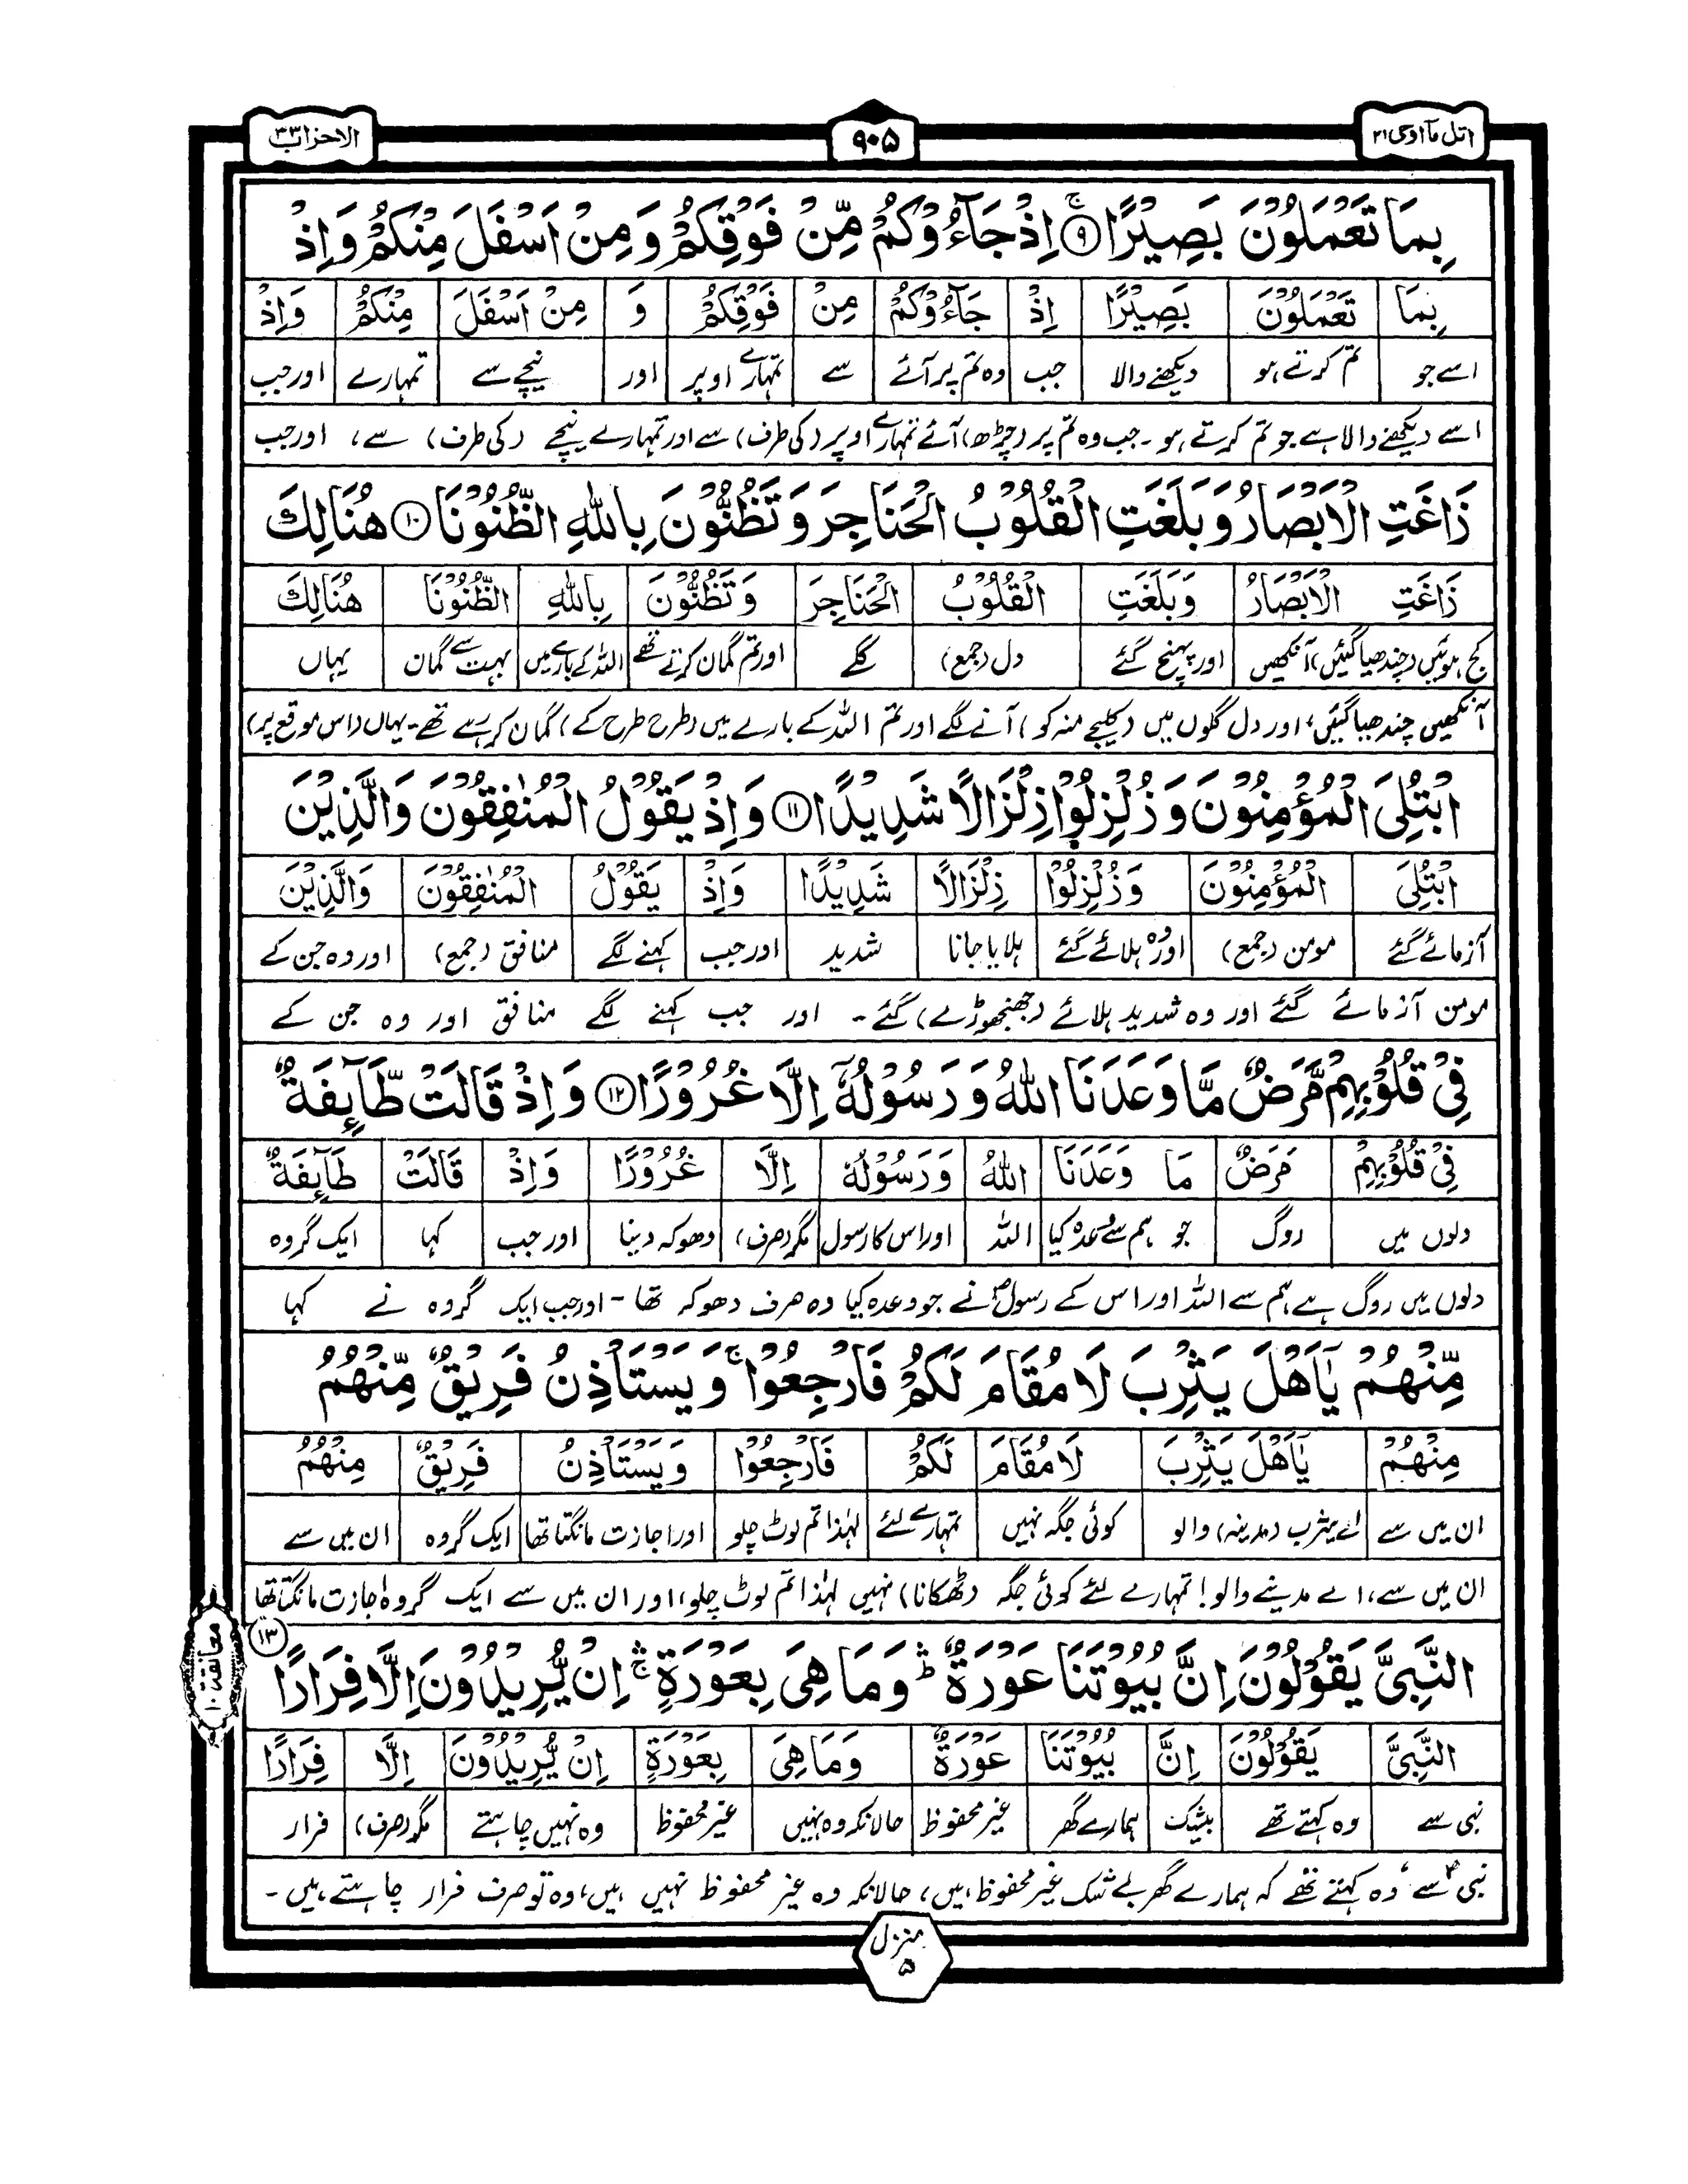 اتل مآ اوحی ۲۱
۹۰۵
الاحزاب ۳۳
بِمَا تَعْمَلُوْنَ بَصِیْرًا ۹ۚ اِذْ جَآءُوْكُمْ مِّنْ فَوْقِكُمْ وَ مِنْ اَسْفَلَ مِنْكُمْ وَ اِذْ
بِمَا تَعْمَلُوْنَ بَصِیْرًا اِذْ جَآءُوْكُمْ مِنْ فَوْقِكُمْ وَ مِنْ اَسْفَلَ مِنْكُمْ وَاِذْ
اسے جو تم کرتے ہو دیکھنے والا جب وہ تم پر آئے سے تمہارے اوپر اور نیچے سے تمہارے اور جب
اسے دیکھنے والا ہے جو تم کرتے ہو۔ جب وہ تم پر (چڑھ) آئے تمہارے اوپر (کی طرف) سے اور تمہارے نیچے (کی طرف) سے، اور جب
زَاغَتِ الْاَبْصَارُ وَ بَلَغَتِ الْقُلُوْبُ الْحَنَاجِرَ وَ تَظُنُّوْنَ بِاللّٰهِ الظُّنُوْنَا ۱۰ هُنَالِكَ
زَاغَتِ الْاَبْصَارُ وَبَلَغَتِ الْقُلُوْبُ الْحَنَاجِرَ وَتَظُنُّوْنَ بِاللّٰهِ الظُّنُوْنَا هُنَالِكَ
کج ہوئیں (چندھیا گئیں) آنکھیں اور پہنچ گئے دل (جمع) گلے اور تم گمان کرتے تھے اللہ کے بارے میں بہت سے گمان یہاں
آنکھیں چندھیا گئیں، اور دل گلوں میں (کلیجے منہ کو) آنے لگے اور تم اللہ کے بارے میں (طرح طرح کے) گمان کر رہے تھے۔ یہاں (اس موقع پر)
ابْتُلِیَ الْمُؤْمِنُوْنَ وَ زُلْزِلُوْا زِلْزَالًا شَدِیْدًا ۱۱ وَ اِذْ یَقُوْلُ الْمُنٰفِقُوْنَ وَالَّذِیْنَ
ابْتُلِیَ الْمُؤْمِنُوْنَ وَزُلْزِلُوْا زِلْزَالًا شَدِیْدًا وَاِذْ یَقُوْلُ الْمُنٰفِقُوْنَ وَالَّذِیْنَ
آزمائے گئے مومن (جمع) اور وہ ہلائے گئے ہلایا جانا شدید اور جب کہنے لگے منافق (جمع) اور وہ جن کے
مومن آزمائے گئے اور وہ شدید ہلائے (جھنجھوڑے) گئے۔ اور جب کہنے لگے منافق اور وہ جن کے
فِیْ قُلُوْبِهِمْ مَّرَضٌ مَّا وَعَدَنَا اللّٰهُ وَ رَسُوْلُهٗۤ اِلَّا غُرُوْرًا ۱۲ وَ اِذْ قَالَتْ طَّآىِٕفَةٌ
فِیْ قُلُوْبِهِمْ مَرَضٌ مَا وَعَدَنَا اللّٰهُ وَرَسُوْلُهٗ اِلَّا غُرُوْرًا وَاِذْ قَالَتْ طَآىِٕفَةٌ
دلوں میں روگ جو ہم سے وعدہ کیا اللہ اور اس کا رسول مگر (صرف) دھوکہ دینا اور جب کہا ایک گروہ
دلوں میں روگ ہے ہم سے اللہ اور اس کے رسولؐ نے جو وعدہ کیا وہ صرف دھوکہ تھا۔ اور جب ایک گروہ نے کہا
مِّنْهُمْ یٰۤاَهْلَ یَثْرِبَ لَا مُقَامَ لَكُمْ فَارْجِعُوْاۚ وَ یَسْتَاْذِنُ فَرِیْقٌ مِّنْهُمُ
مِنْهُمْ یٰۤاَهْلَ یَثْرِبَ لَا مُقَامَ لَكُمْ فَارْجِعُوْا وَیَسْتَاْذِنُ فَرِیْقٌ مِنْهُمُ
ان میں سے اے یثرب (مدینہ) والو کوئی جگہ نہیں تمہارے لئے لہٰذا تم لوٹ چلو اور اجازت مانگتا تھا ایک گروہ ان میں سے
ان میں سے، اے مدینے والو! تمہارے لئے کوئی جگہ (ٹھکانا) نہیں لہٰذا تم لوٹ چلو، اور ان میں سے ایک گروہ اجازت مانگتا تھا
النَّبِیَّ یَقُوْلُوْنَ اِنَّ بُیُوْتَنَا عَوْرَةٌ ؕۛ وَ مَا هِیَ بِعَوْرَةٍ ۚۛ اِنْ یُّرِیْدُوْنَ اِلَّا فِرَارًا ۱۳
معانقة ۱۰
النَّبِیَّ یَقُوْلُوْنَ اِنَّ بُیُوْتَنَا عَوْرَةٌ وَمَا هِیَ بِعَوْرَةٍ اِنْ یُّرِیْدُوْنَ اِلَّا فِرَارًا
نبی سے وہ کہتے تھے بیشک ہمارے گھر غیر محفوظ حالانکہ وہ نہیں غیر محفوظ وہ نہیں چاہتے مگر (صرف) فرار
نبیؐ سے، وہ کہتے تھے کہ ہمارے گھر بے شک غیر محفوظ ہیں، حالانکہ وہ غیر محفوظ نہیں ہیں، وہ تو صرف فرار چاہتے ہیں۔
منزل
۵